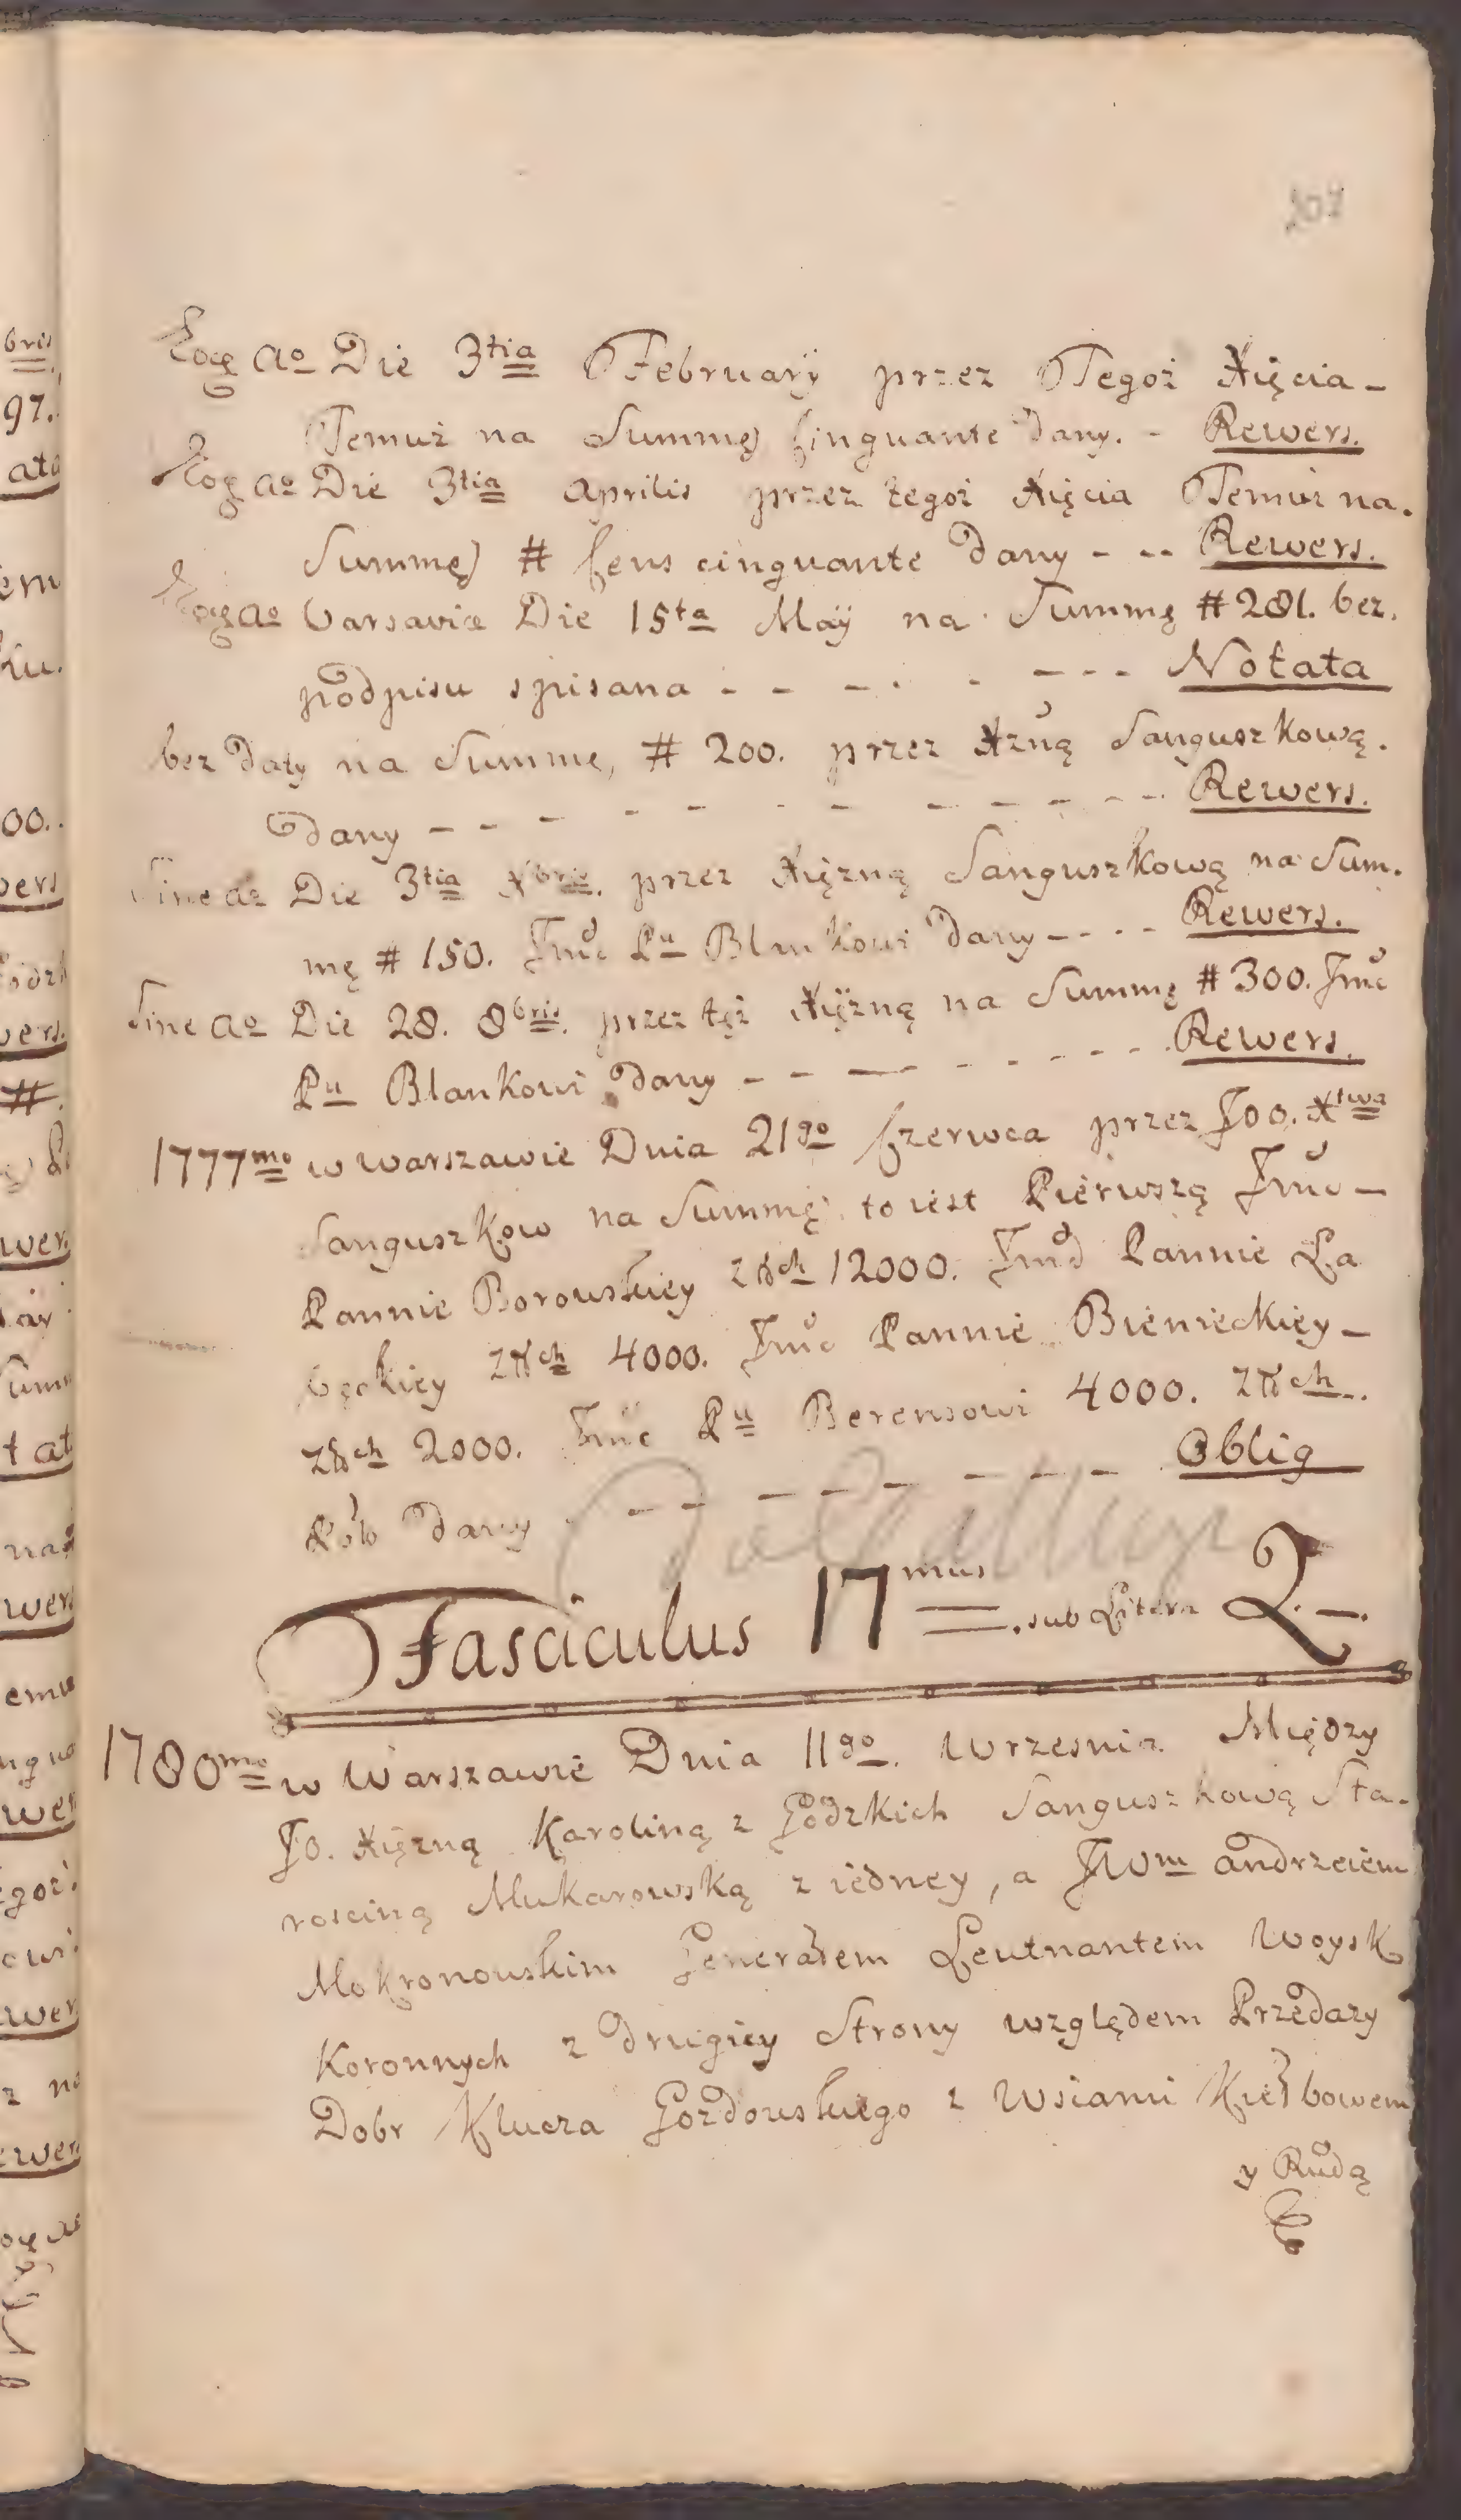 207
Eoqe Ao Die 3tia February przez Tegoż Xięcia -
Temuż na Summę Cinquante dany. - Rewers.
Eoqe Ao Die 3tia Aprilis przez tegoż Xięcia Temuż na.
Summę # Cens cinquante dany - - - Rewers.
Eoqe Ao Varsavia Die 15ta Maÿ na Summę # 281. bez.
podpisu spisana - - - - - - - Notata
bez Daty na Summę, # 200. przez Xzną Sanguszkową.
dany - - - - - - - - - - - Rewers.
Sine Ao Die 3tia Xbris. przez Xiężną Sanguszkową na Sum.
mę # 150. Jmć Pu Blankowi dany - - - - Rewers.
Sine Ao Die 28. 8bris. przez tęż Xiężną na Summę # 300. Jmć
Pu Blankowi dany - - - - - - - - Rewers.
1777mo w Warszawie Dnia 21go Czerwca przez JOO. Xtwa
Sanguszkow na Summę to iest Pierwszą Jmć -
Pannie Borowskiey złłch 12000. Jmć Pannie Ła
będkiey złłch 4000. Jmć Pannie Bienieckiey -
złłch 2000. Jmć Pu Berensowi 4000. złłch
Pów dany - - - - - - - - Oblig
Fasciculus 17mus sub Litera Q. -.
1780mo w Warszawie Dnia 11go. Wrzesnia Między
JO. Xiężną Karoliną z Gòdzkich Sanguszkową Sta.
rosciną Mukarowską z iedney, a JWm Andrzeiem
Mokronowskim Generałem Leutnantem Woysk
Koronnych z drugiey Strony względem Przedazy
Dobr Klucza Gozdowskiego z Wsiami Kiełbowem
y Rudą